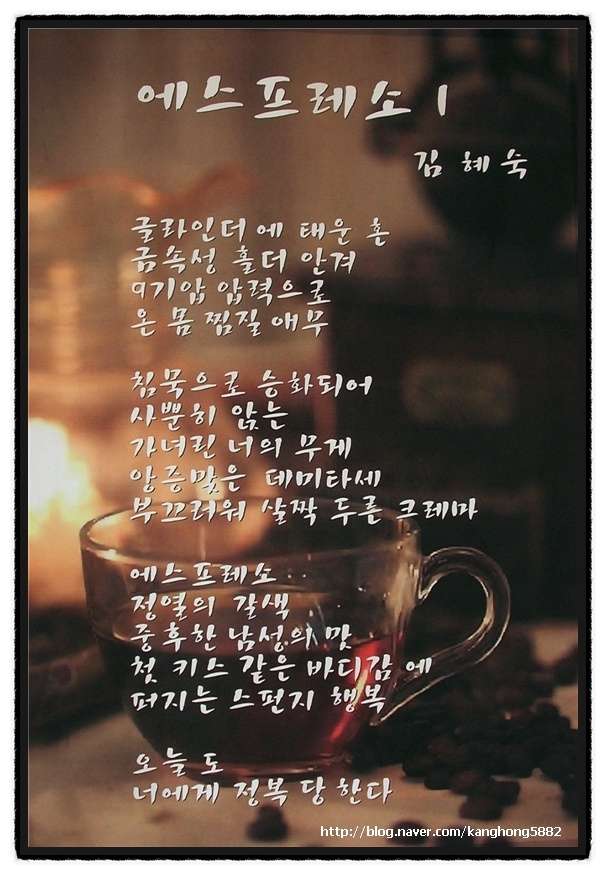 에스프레소 1
김 혜 숙
글라인더에 태운 혼
금속성 홀더 안겨
9기압 압력으로
온 몸 찜질 애무
침묵으로 승화되어
사뿐히 앉는
가녀린 너의 무게
앙증맞은 데미타세
부끄러워 살짝 두른 크레마
에스프레소
정열의 갈색
중후한 남성의 맛
첫 키스 같은 바디감 에
퍼지는 스펀지 행복
오늘 도
너에게 정복 당 한다
http://blog.naver.com/kanghong5882